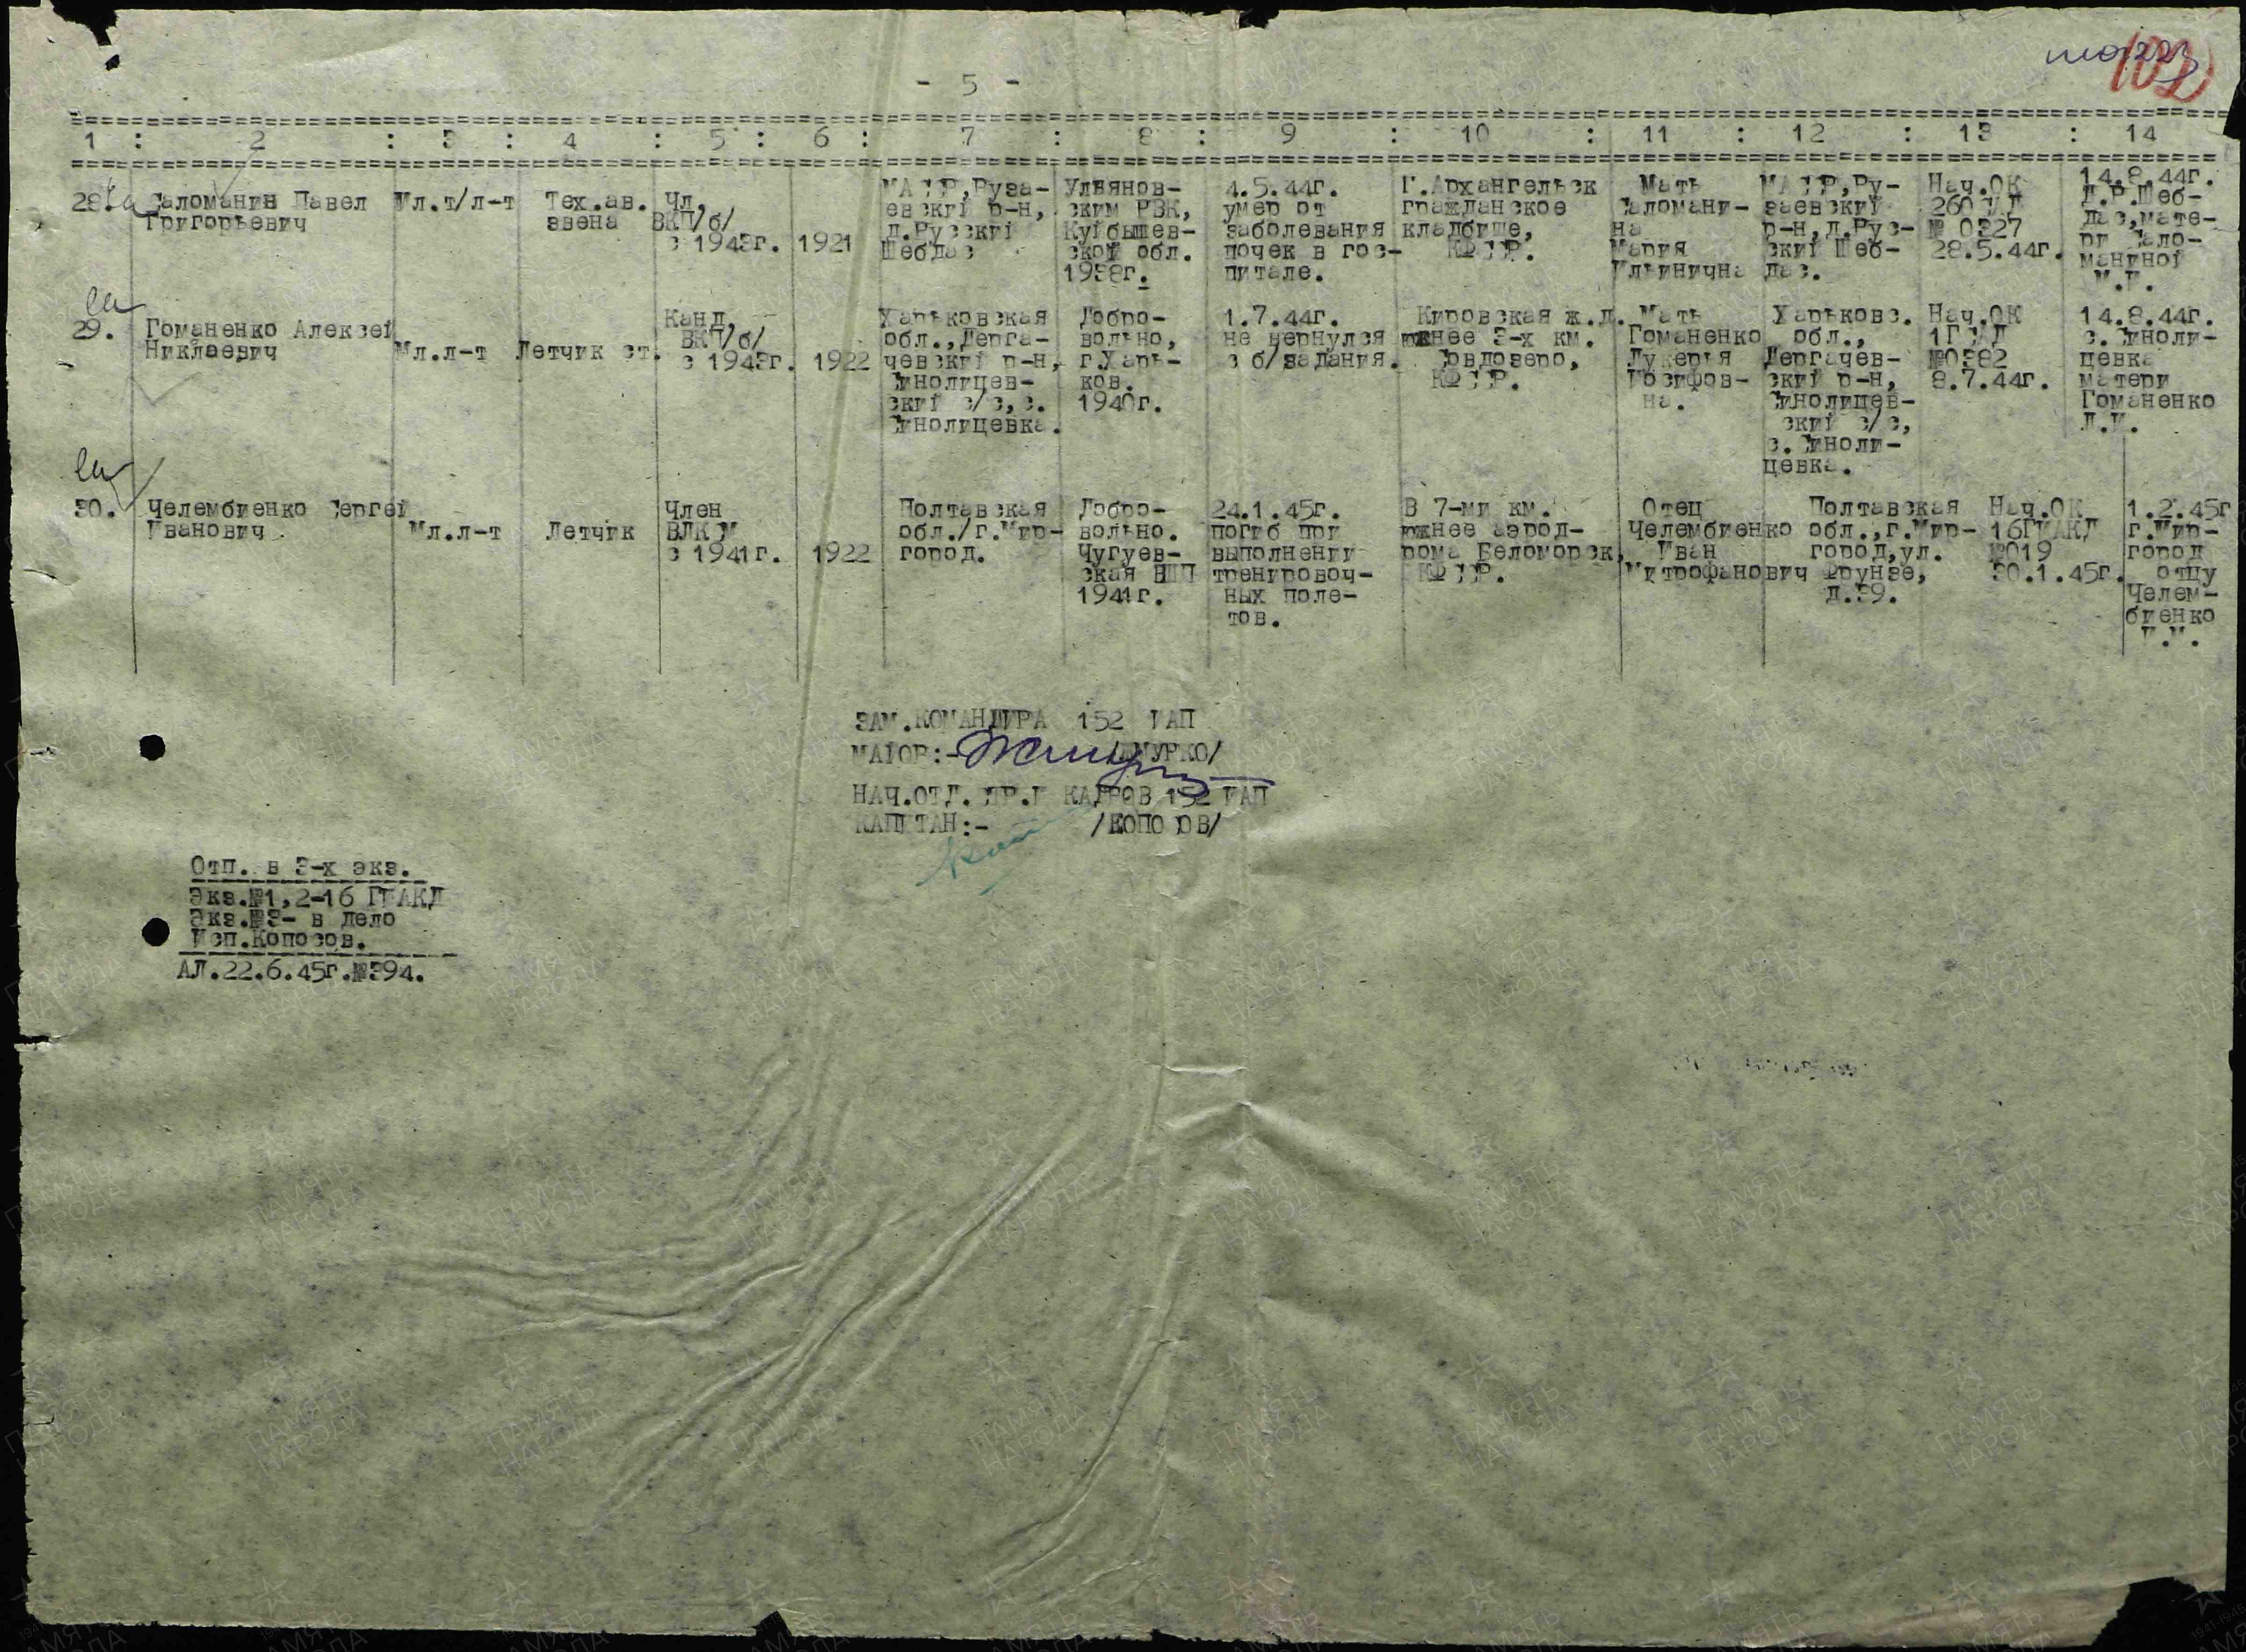 - 5 -
1 : 2 : 3 : 4 : 5 : 6 : 7 : 8 : 9 : 10 : 11 : 12 : 13 : 14
28. Саломанин Павел Григорьевич
Мл.т/л-т
Тех.ав. звена
Чл. ВКП/б/ с 1943г.
1921
МАССР,Руза-
евский р-н,
д.Русский
Шебдас
Ульянов-
ским РВК,
Куйбышев-
ской обл.
1938г.
4.5.44г.
умер от
заболевания
почек в гос-
питале.
Г.Архангельск
гражданское
кладбище,
КФССР.
Мать
Саломани-
на
Мария
Ильинична
МАССР,Ру-
заевский
р-н,д.Рус-
ский Шеб-
дас.
Нач.ОК
260 САД
№ 0327
28.5.44г.
14.8.44г.
Д.Р.Шеб-
дас,мате-
ри Сало-
маниной
М.И.
29. Гоманенко Алексей
Никлаевич
Мл.л-т
Летчик ст.
Канд.
ВКП/б/
с 1943г.
1922
Харьковская
обл.,Дерга-
чевский р-н,
Синолицев-
ский с/с,с.
Синолицевка.
Добро-
вольно,
г.Харь-
ков.
1940г.
1.7.44г.
не вернулся
с б/задания.
Кировская ж.д.
южнее 3-х км.
Совдозеро,
КФССР.
Мать
Гоманенко
Лукерья
Иосифов-
на.
Харьковс.
обл.,
Дергачев-
ский р-н,
Синолицев-
ский с/с,
с.Синоли-
цевка.
Нач.ОК
1ГСАД
№0382
8.7.44г.
14.8.44г.
с.Синоли-
цевка
матери
Гоманенко
Л.И.
30. Челембиенко Сергей
Иванович
Мл.л-т
Летчик
Член
ВЛКСМ
с 1941г.
1922
Полтавская
обл./г.Мир-
город.
Добро-
вольно.
Чугуев-
ская ВШП
1941г.
24.1.45г.
погиб при
выполнении
тренировоч-
ных поле-
тов.
В 7-ми км.
южнее аэрод-
рома Беломорск,
КФССР.
Отец
Челембиенко
Иван
Митрофанович
Полтавская
обл.,г.Мир-
город,ул.
Фрунзе,
д.39.
Нач.ОК
16ГИАКД
№019
30.1.45г.
1.2.45г
г.Мир-
город
отцу
Челем-
биенко
И.М.
ЗАМ.КОМАНДИРА 152 ИАП
МАЙОР:- /ЖМУРКО/
НАЧ.ОТД. СТР.И КАДРОВ 152 ИАП
КАПИТАН:- /КОПОСОВ/
Отп. в 3-х экз.
Экз.№1,2-16 ГИАКД
Экз.№3- в дело
Исп.Копосов.
АЛ.22.6.45г.№394.